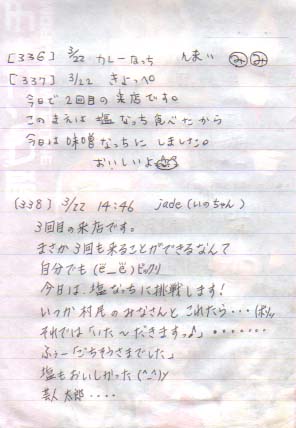 [336] 3/22 カレーなっち んまい
[337] 3/22 きょっぺ。
今日で2回目の来店です。
このまえは塩なっち食べたから
今日は味噌なっちにしました。
おいしいよ
[338] 3/22 14:46 jade(いのちゃん)
3回目の来店です。
まさか3回も来ることができるなんて
自分でも(ﾋﾞ__ﾋﾞ)ビックリ
今日は、塩なっちに挑戦します!
いつか村民のみなさんとこれたら・・・(ポッ//
それでは「いた〜だきますっ♪」・・・・・・・
ふぅー「ごちそうさまでした」
塩もおいしかった(^_^)y
芸人 太郎・・・・